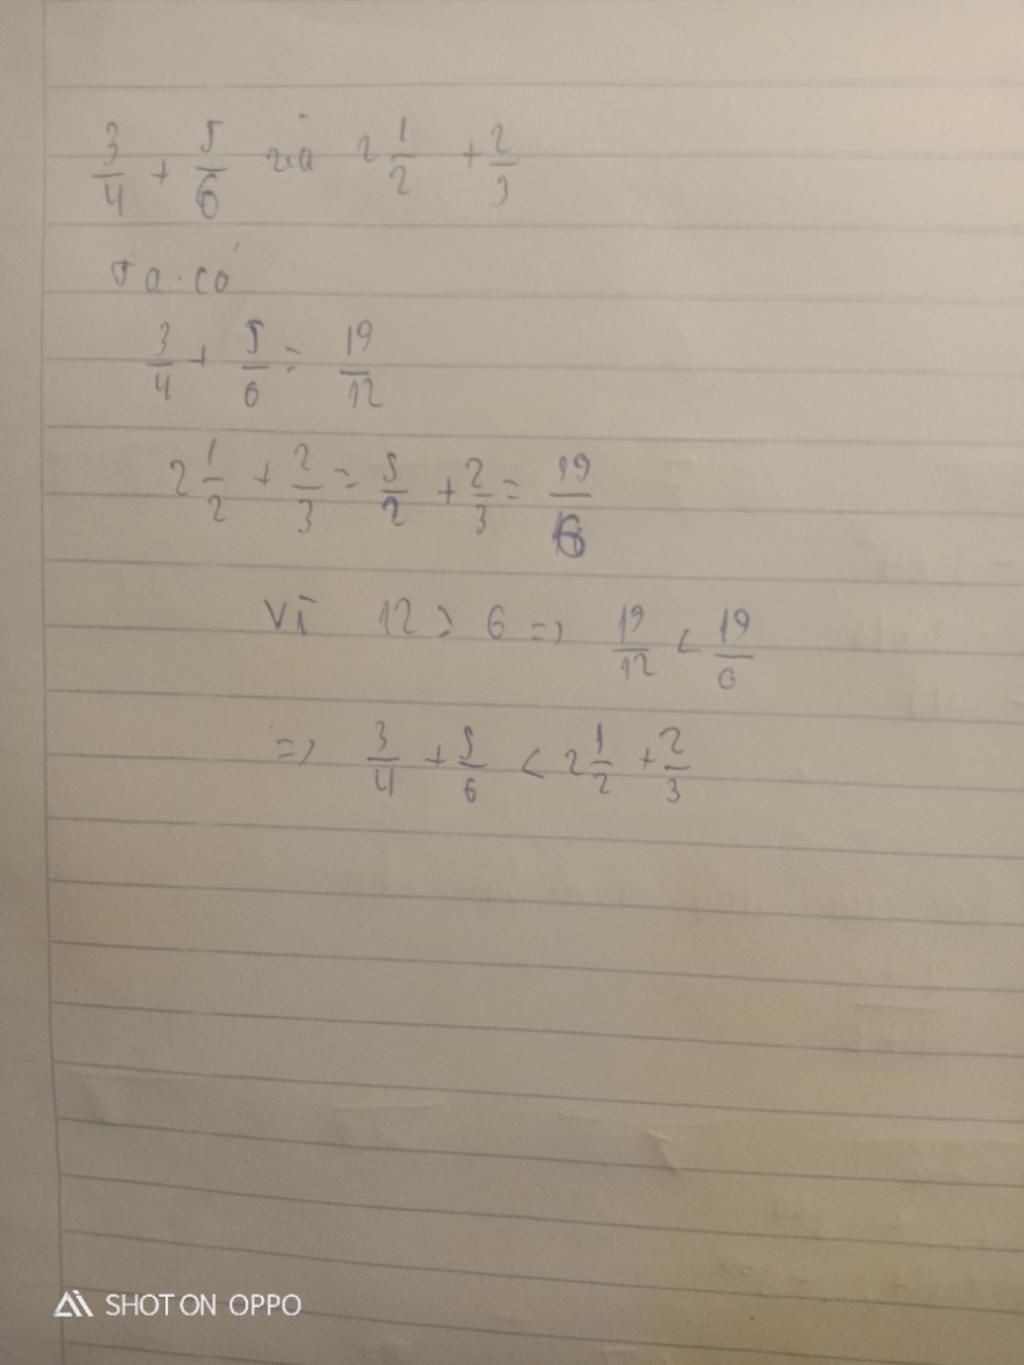 3/4 + 5/6 và 2 1/2 + 2/3
Ta có
3/4 + 5/6 = 19/12
2 1/2 + 2/3 = 5/2 + 2/3 = 19/6
Vì 12 > 6 => 19/12 < 19/6
=> 3/4 + 5/6 < 2 1/2 + 2/3
SHOT ON OPPO